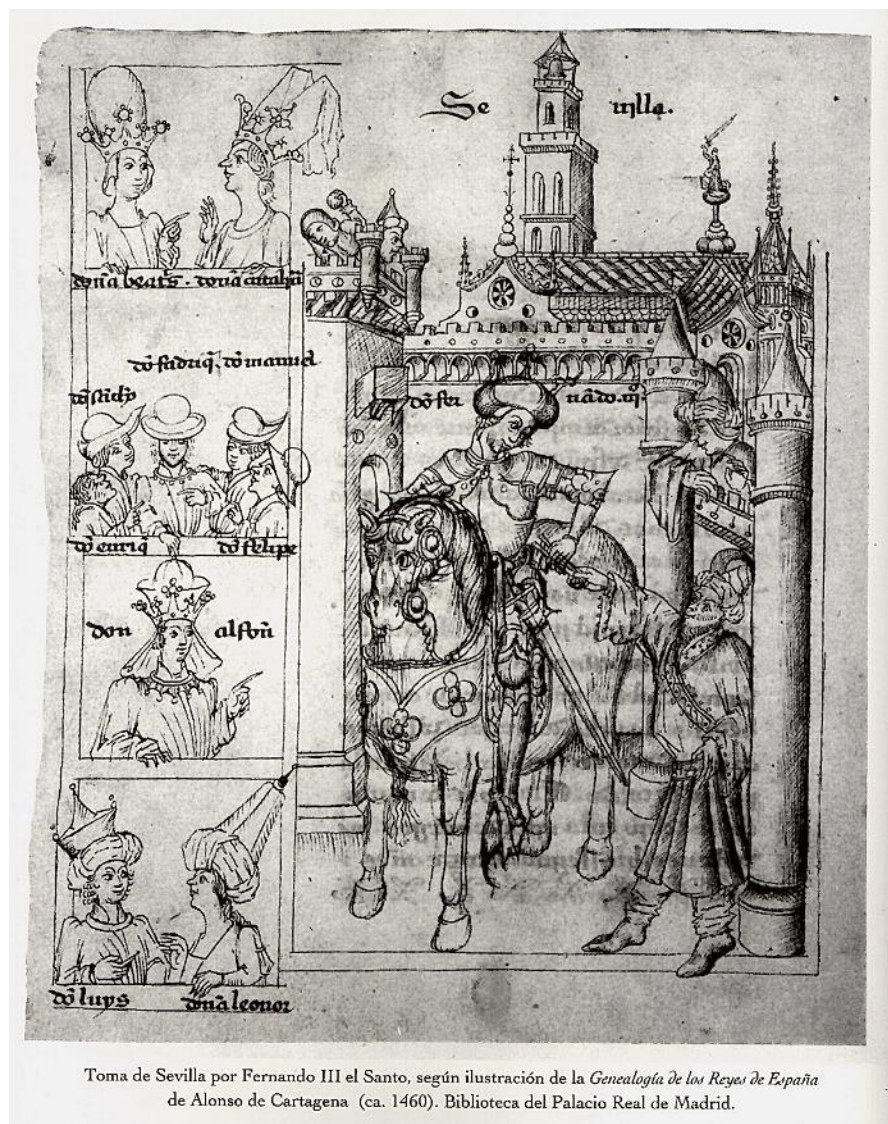 Se uilla.
doña beatꝫ. doña
dō fadriq̄. dō manuel
dō ferī nādo. iijº
dō enriq̄ dō felipe
don alfon̄
dō luys doña leonor
Toma de Sevilla por Fernando III el Santo, según ilustración de la Genealogía de los Reyes de España
de Alonso de Cartagena (ca. 1460). Biblioteca del Palacio Real de Madrid.